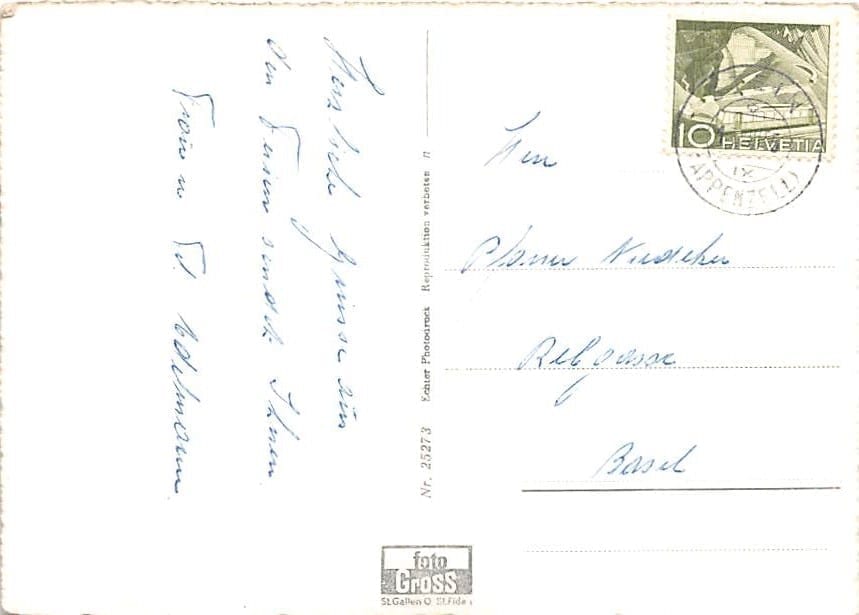 Herzliche Grüsse aus
den Ferien sendet Ihnen
Frau u Frl. Edelmann
Nr. 25273 Echter Photodruck Reproduktion verboten
10 HELVETIA
(APPENZELL)
IX
Herrn
Pfarrer
Rebgasse
Basel
foto
Gross
St.Gallen O. St.Fiden